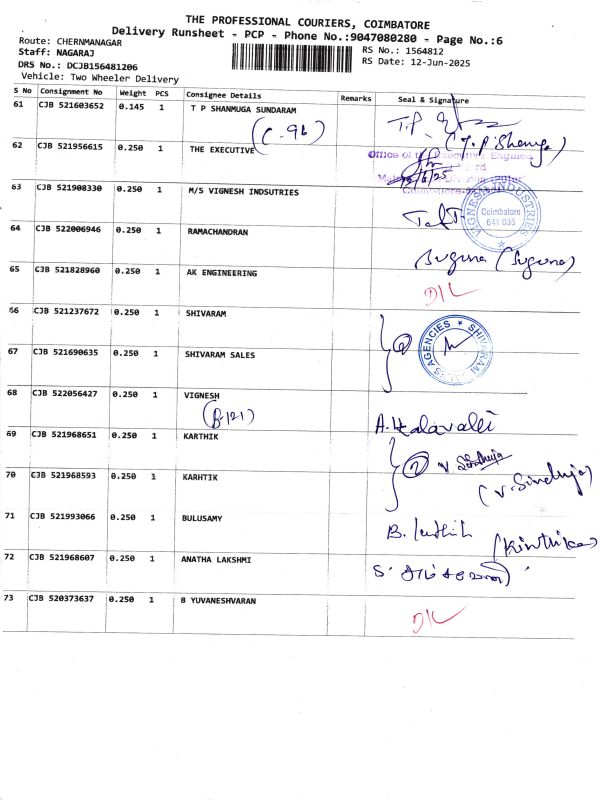 THE PROFESSIONAL COURIERS, COIMBATORE
Delivery Runsheet - PCP - Phone No.:9047080280 - Page No.:6
Route: CHERNMANAGAR
RS No.: 1564812
Staff: NAGARAJ
RS Date: 12-Jun-2025
DRS No.: DCJB156481206
Vehicle: Two Wheeler Delivery
S No Consignment No Weight PCS Consignee Details Remarks Seal & Signature
61 CJB 521603652 0.145 1 T P SHANMUGA SUNDARAM
(C-96)
62 CJB 521956615 0.250 1 THE EXECUTIVE
Office of the Executive Engineer
63 CJB 521908330 0.250 1 M/S VIGNESH INDSUTRIES
VIGNESH INDUSTRIES
Coimbatore
641 035
64 CJB 522006946 0.250 1 RAMACHANDRAN
Suguna (Suguna)
65 CJB 521828960 0.250 1 AK ENGINEERING
D/L
66 CJB 521237672 0.250 1 SHIVARAM
2
67 CJB 521690635 0.250 1 SHIVARAM SALES
SHIVARAM AGENCIES
68 CJB 522056427 0.250 1 VIGNESH
(B-121)
A. Kalavalli
69 CJB 521968651 0.250 1 KARTHIK
2 V. Sindhuja
70 CJB 521968593 0.250 1 KARHTIK
(V. Sindhuja)
71 CJB 521993066 0.250 1 BULUSAMY
B. (Kirthika)
72 CJB 521968607 0.250 1 ANATHA LAKSHMI
73 CJB 520373637 0.250 1 B YUVANESHVARAN
D/L